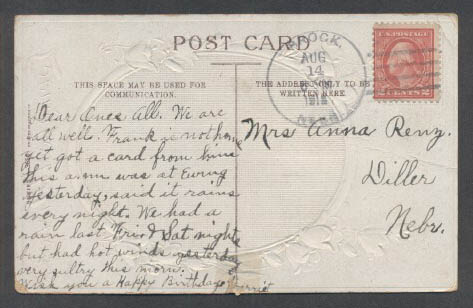 POST CARD
THIS SPACE MAY BE USED FOR
COMMUNICATION.
THE ADDRESS ONLY TO BE
WRITTEN HERE
AUG
14
191
NEBR
U.S. POSTAGE
2 CENTS 2
Dear Ones All. We are
all well. Frank is not home
yet got a card from him
this a.m. was at Ewing
yesterday, said it rains
every night. We had a
rain last Fri & Sat nights
but had hot winds yesterday
very sultry this morn.
Wish you a Happy Birthday
Mrs Anna Renz.
Diller
Nebr.